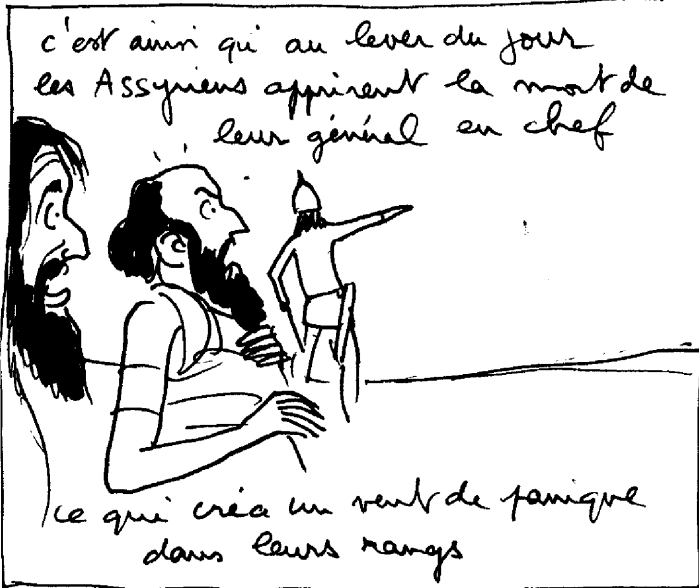 c'est ainsi qu'au lever du jour
les Assyriens apprirent la mort de
leur général en chef
ce qui créa un vent de panique
dans leurs rangs